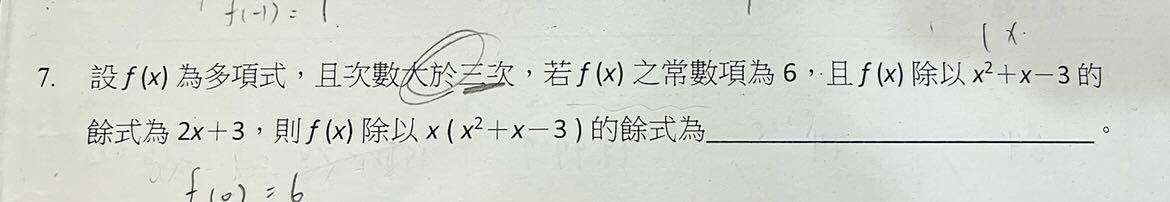 f(-1) = 1
1 x
7. 設 f (x) 為多項式，且次數大於三次，若 f (x) 之常數項為 6，且 f (x) 除以 x²＋x－3 的
餘式為 2x＋3，則 f (x) 除以 x ( x²＋x－3 ) 的餘式為____________________。
f(0) = 6